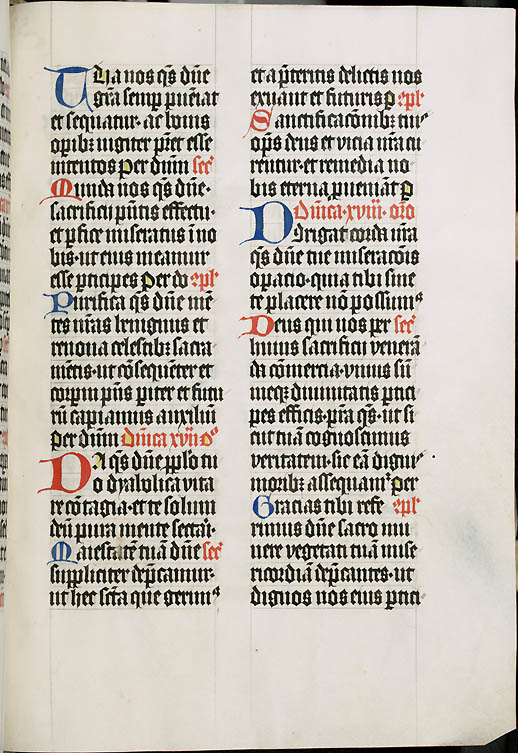 Tua nos qs dne
gra semp pueniat
et sequatur. ac bonis
opibz iugiter pret esse
intentos per dnm sec
Munda nos qs dne.
sacrificii pntis effectu.
et pfice miseratus i no
bis. ut eius mereamur
esse pticipes Per do 9pl
Purifica qs dne men
tes nras benignus et
renoua celestibz sacra
mentis. ut csequeter et
corpum pns piter et futu
ru capiamus auxiliu
Per dnm dnica xvii o
Da qs dne pplo tu
o dyabolica vita
re cotagia. et te solum
deu pura mente sectari.
Maiestate tua dne sec
suppliciter depcamur.
ut hec sca que gerim9
et a pteritis delictis nos
exuant et futuris p 9pl
Sanctificacoibz tuis
ops deus et vicia nra cu
rentur. et remedia no
bis eterna pueniat p
Dnica. xviii. oro
Dirigat corda nra
qs dne tue miseracois
opacio. quia tibi sine
te placere no possum9
Deus qui nos per sec
huius sacrificii venera
da comercia. vnius su
meqz diuinitatis ptici
pes efficis. pta qs. ut si
cut tua cognoscimus
veritatem. sic ea dignis
moribz assequam Per
Gracias tibi refe 9pl
rimus dne sacro mu
nere vegetati tua mise
ricordia depcantes. ut
dignos nos eius ptici